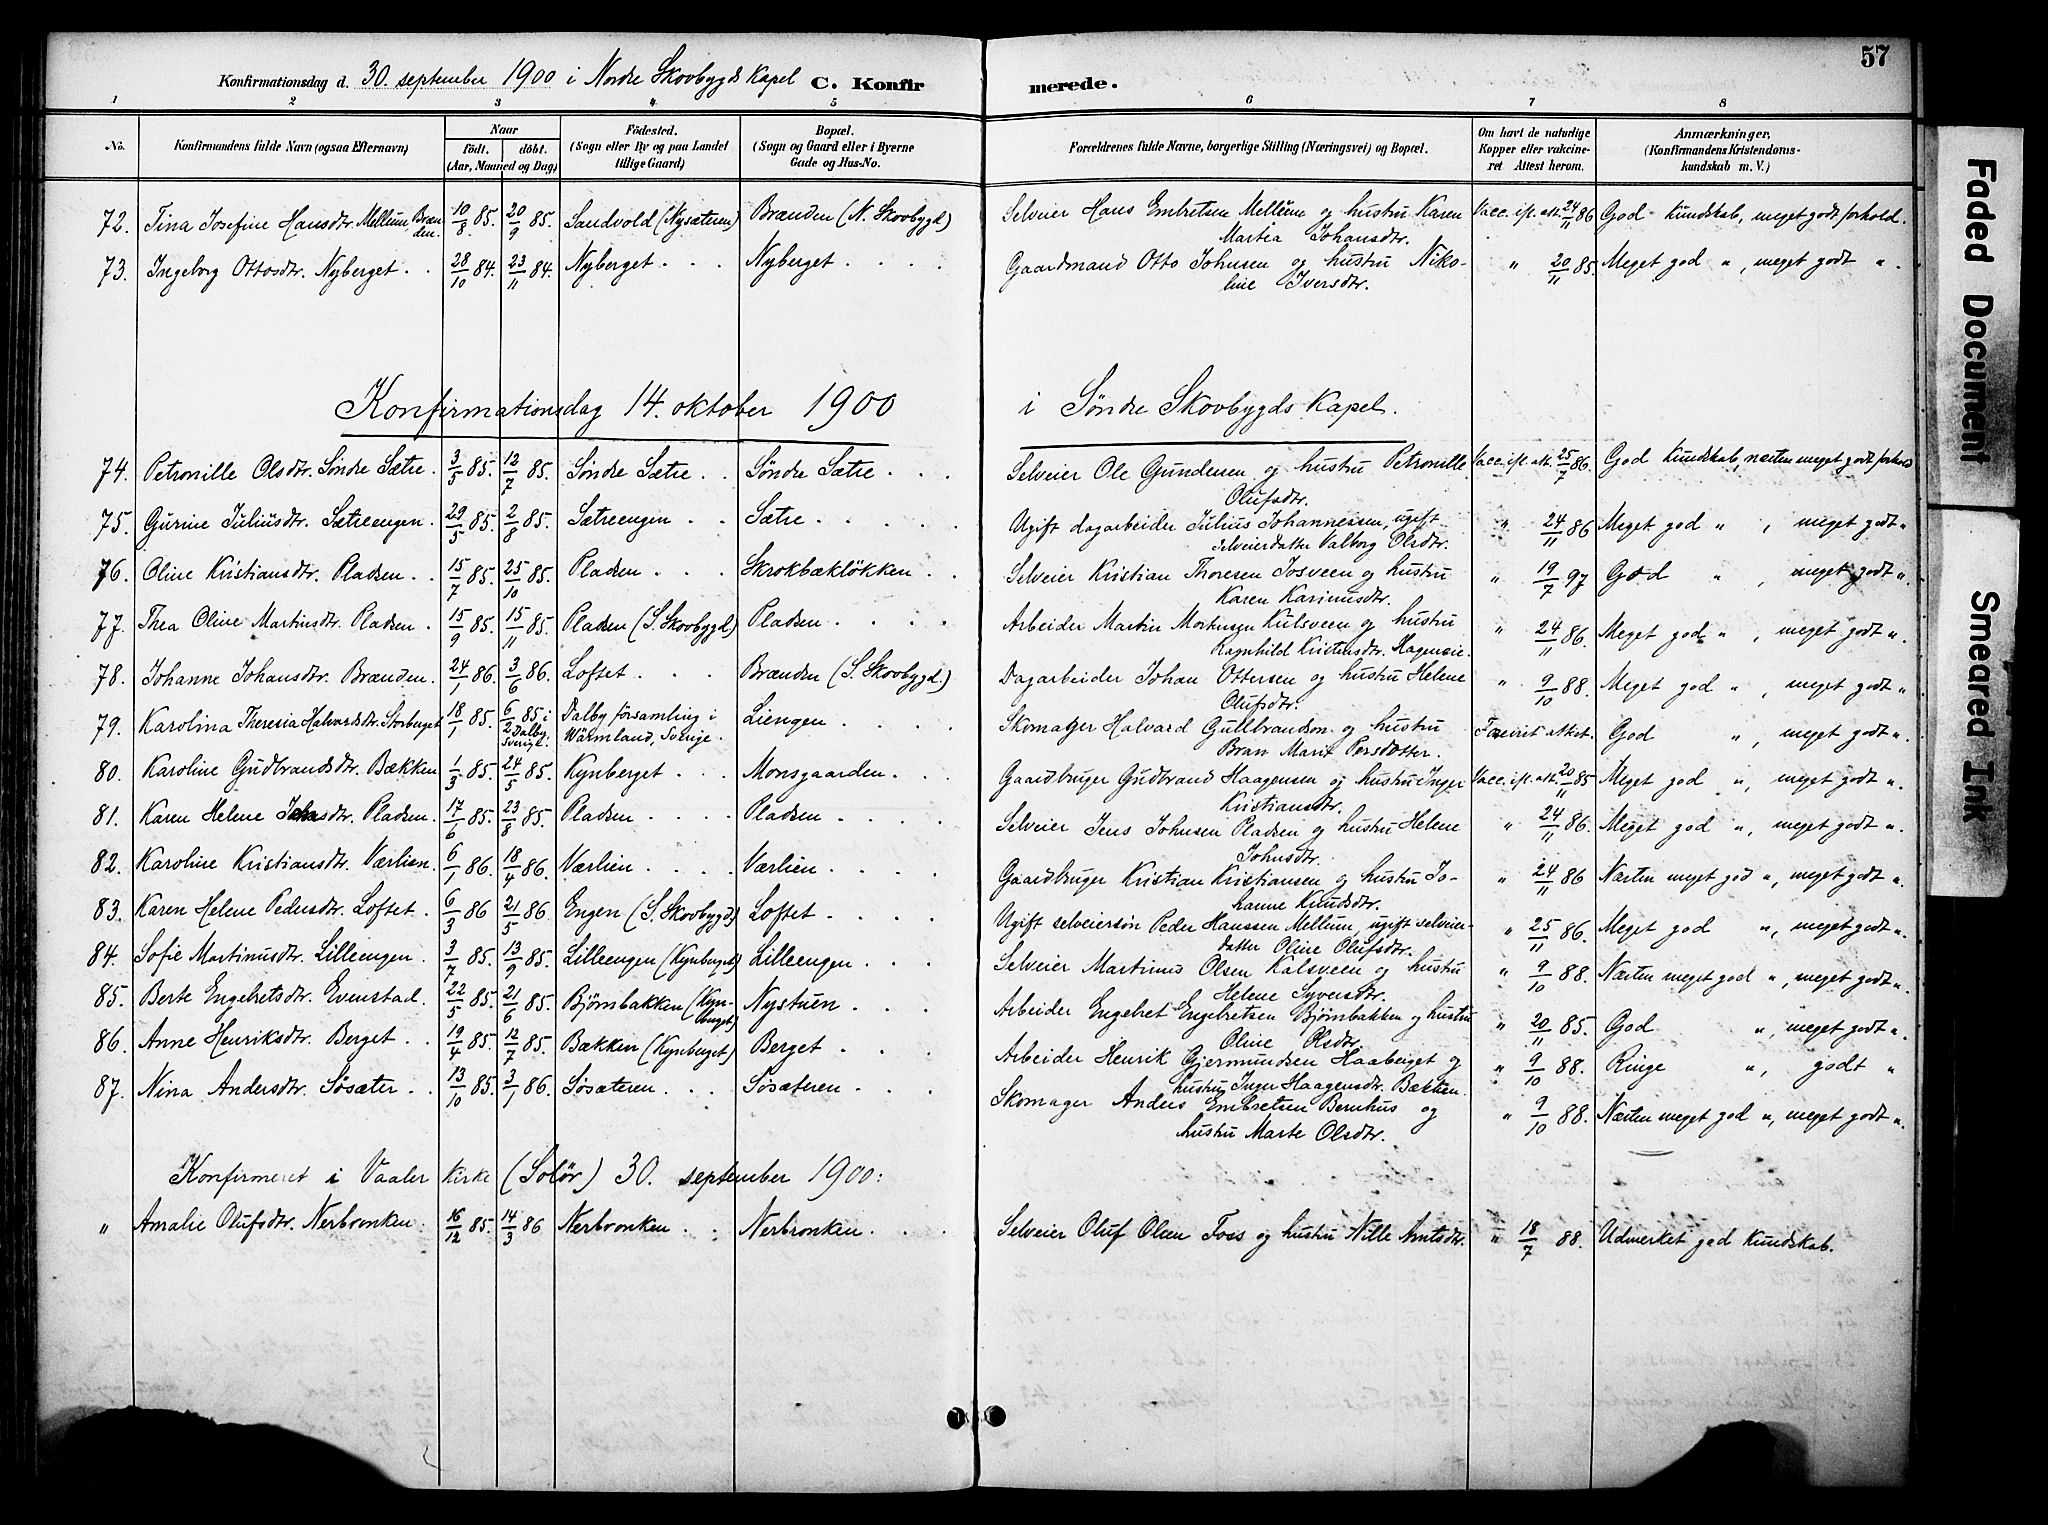 57
Konfirmationsdag d. 30. september 1900 i Nordre Skovbygds Kapel C. Konfirmerede.
1 2 3 4 5 6 7 8
No.
Konfirmandens fulde Navn (ogsaa Efternavn)
Naar
födt. döbt.
(Aar, Maaned og Dag)
Födested.
(Sogn eller By og paa Landet
tillige Gaard)
Bopæl.
(Sogn og Gaard eller i Byerne
Gade og Hus-No.
Forældrenes fulde Navne, borgerlige Stilling (Næringsvei) og Bopæl.
Om havt de naturlige
Kopper eller vakcine-
ret Attest herom.
Anmærkninger.
(Konfirmandens Kristendoms-
kundskab m. V.)
72. Tina Josefine Hansdtr. Mellum, Brænden. 10/8 85. 20/9 85. Sandvold (Nysæteren) Brænden (N. Skovbygd) Selveier Hans Embretsen Mellem og hustru Karen Vacc. ifl. att. 24/11 86 God kundskab, meget godt forhold.
Martea Johansdtr.
73. Ingeborg Ottosdtr. Nyberget . . 28/10 84. 23/11 84. Nyberget . . . Nyberget . . . . Gaardmand Otto Johnsen og hustru Niko- " 20/11 85. Meget god ", meget godt ".
line Iversdtr.
Konfirmationsdag 14. oktober 1900 i Söndre Skovbygds Kapel.
74. Petronille Olsdtr. Söndre Sætre. 3/5 85. 12/7 85. Söndre Sætre . . Söndre Sætre . . . Selveier Ole Gundersen og hustru Petronille Vacc. ifl. att. 25/7 86. God kundskab, næsten meget godt forhold
Olufsdtr.
75. Gurine Juliusdtr. Sætreengen. 29/5 85. 2/8 85. Sætreengen . . Sætre . . . . . Ugift dagarbeider Julius Johannesen, ugift " 24/11 86 Meget god ", meget godt ".
selveierdatter Valborg Olsdtr.
76. Oline Kristiansdtr. Pladsen . . 15/7 85. 25/10 85. Pladsen . . . Skrokbækløkken . . Selveier Kristian Thoresen Josveen og hustru " 19/7 97 God ", meget godt ".
Karen Karinusdtr.
77. Thea Oline Martinsdtr. Pladsen . 15/9 85. 15/11 85. Pladsen (S. Skovbygd) Pladsen . . . . Arbeider Martin Mortensen Kulsveen og hustru " 24/11 86. Meget god ", meget godt ".
Ragnhild Kristensdtr. Hageneie.
78. Johanne Johansdtr. Brænden. 24/1 86. 3/6 86. Loftet . . . Brænden (S. Skovbygd.) Dagarbeider Johan Ottersen og hustru Helene " 9/10 88. Meget god ", meget godt "
Olufsdtr.
79. Karolina Theresia Halvardsdtr. Storberget 18/1 85. 6/2 85 i Dalby, Sverige. Dalby församling i Wärmland, Sverige. Liengen . . . Skomager Halvard Gullbrandson og hustru Forevist attest. God ", meget godt ".
Bran Marit Persdotter.
80. Karoline Gudbrandsdtr. Bækken 1/3 85. 24/5 85. Kynberget . . . Monsgaarden . . . Gaardbruger Gudbrand Haagensen og hustru Inger Vacc. ifl. att. 20/11 85 Meget god ", meget godt ".
Kristiansdtr.
81. Karen Helene Jensdtr. Pladsen. 17/6 85. 23/8 85. Pladsen . . . . Pladsen . . . . Selveier Jens Johnsen Pladsen og hustru Helene " 24/11 86. Meget god ", meget godt ".
Johnsdtr.
82. Karoline Kristiansdtr. Værlien. 6/1 86. 18/4 86. Værlien . . . . Værlien . . . . Gaardbruger Kristian Kristiansen og hustru Jo- " 24/11 86 Næsten meget god ", meget godt ".
hanne Knudsdtr.
83. Karen Helene Pedersdtr. Loftet . 6/3 86 21/5 86. Engen (S. Skovbygd) Loftet . . . . Ugift selveiersön Peder Hanssen Mellum, ugift selveier- " 25/11 86. Meget god ", meget godt ".
datter Oline Olufsdtr.
84. Sofie Martinusdtr. Lilleengen. 3/7 85. 13/9 85. Lilleengen (Kynberget) Lilleengen . . . Selveier Martinus Olsen Kalsveen og hustru " 9/10 88. Næsten meget god ", meget godt ".
Helene Syversdtr.
85. Berte Engebretsdtr. Evenstad. 22/5 85. 21/6 85. Björnbakken (Kynberget) Nystuen . . . Arbeider Engebret Engebretsen Björnbakken og hustru " 20/11 85. God ", meget godt ".
Oline Olsdtr.
86. Anne Henriksdtr. Berget . . 19/4 85. 12/7 85. Bækken (Kynberget) Berget . . . Arbeider Henrik Gjermundsen Haaberget og " 9/10 88. Ringe ", godt "
hustru Inger Haagensdtr. Bækken.
87. Nina Andersdtr. Sösæter . . 13/10 85. 3/1 86. Sösæteren . . Sösæteren . . . Skomager Anders Embretsen Bernhus og " 9/10 88. Næsten meget god ", meget godt ".
hustru Marte Olsdtr.
Konfirmeret i Vaaler kirke (Solör) 30. september 1900:
" Amalie Olufsdtr. Nerbronken. 16/12 85. 14/3 86 Nerbronken . . Nerbronken . . . Selveier Oluf Olsen Foss og hustru Nille Arntsdtr. " 18/7 88. Udmerket god kundskab.
Faded Document
Smeared Ink